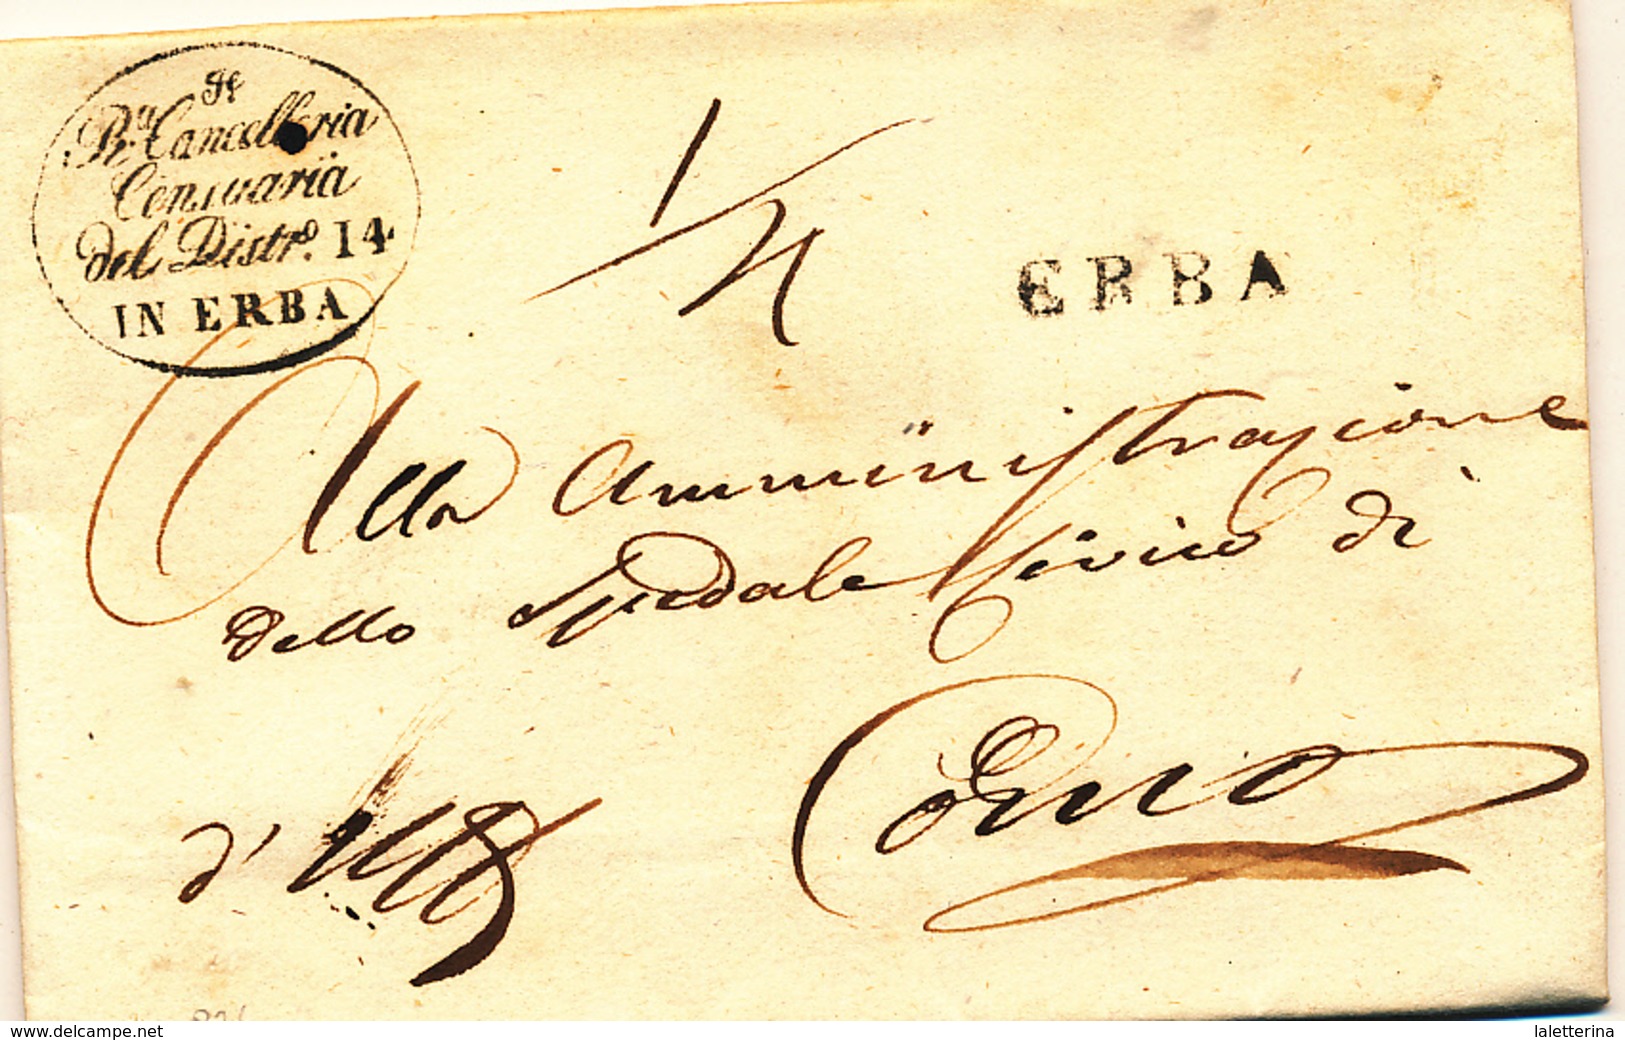 Rª Cancelleria
Censuaria
del Distrº. 14
IN ERBA
ERBA
Alla Amministrazione
dello Spedale Civico di
Como
d'Uff
www.delcampe.net
laletterina